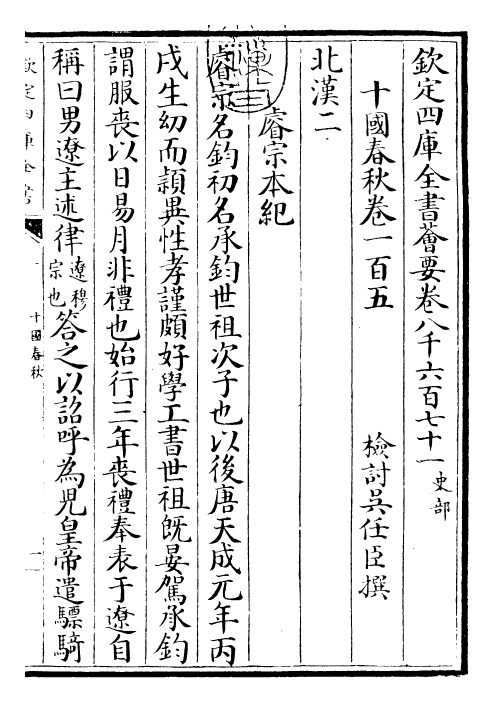 欽定四庫全書薈要卷八千六百七十一史部
十國春秋卷一百五
檢討吳任臣撰
北漢二
睿宗本紀
睿宗名鈞初名承鈞世祖次子也以後唐天成元年丙
戌生幼而頴異性孝謹頗好學工書世祖既晏駕承鈞
謂服喪以日易月非禮也始行三年喪禮奉表于遼自
稱曰男遼主述律遼穆宗也答之以詔呼為兒皇帝遣驃騎
欽定四庫全書
十國春秋
一